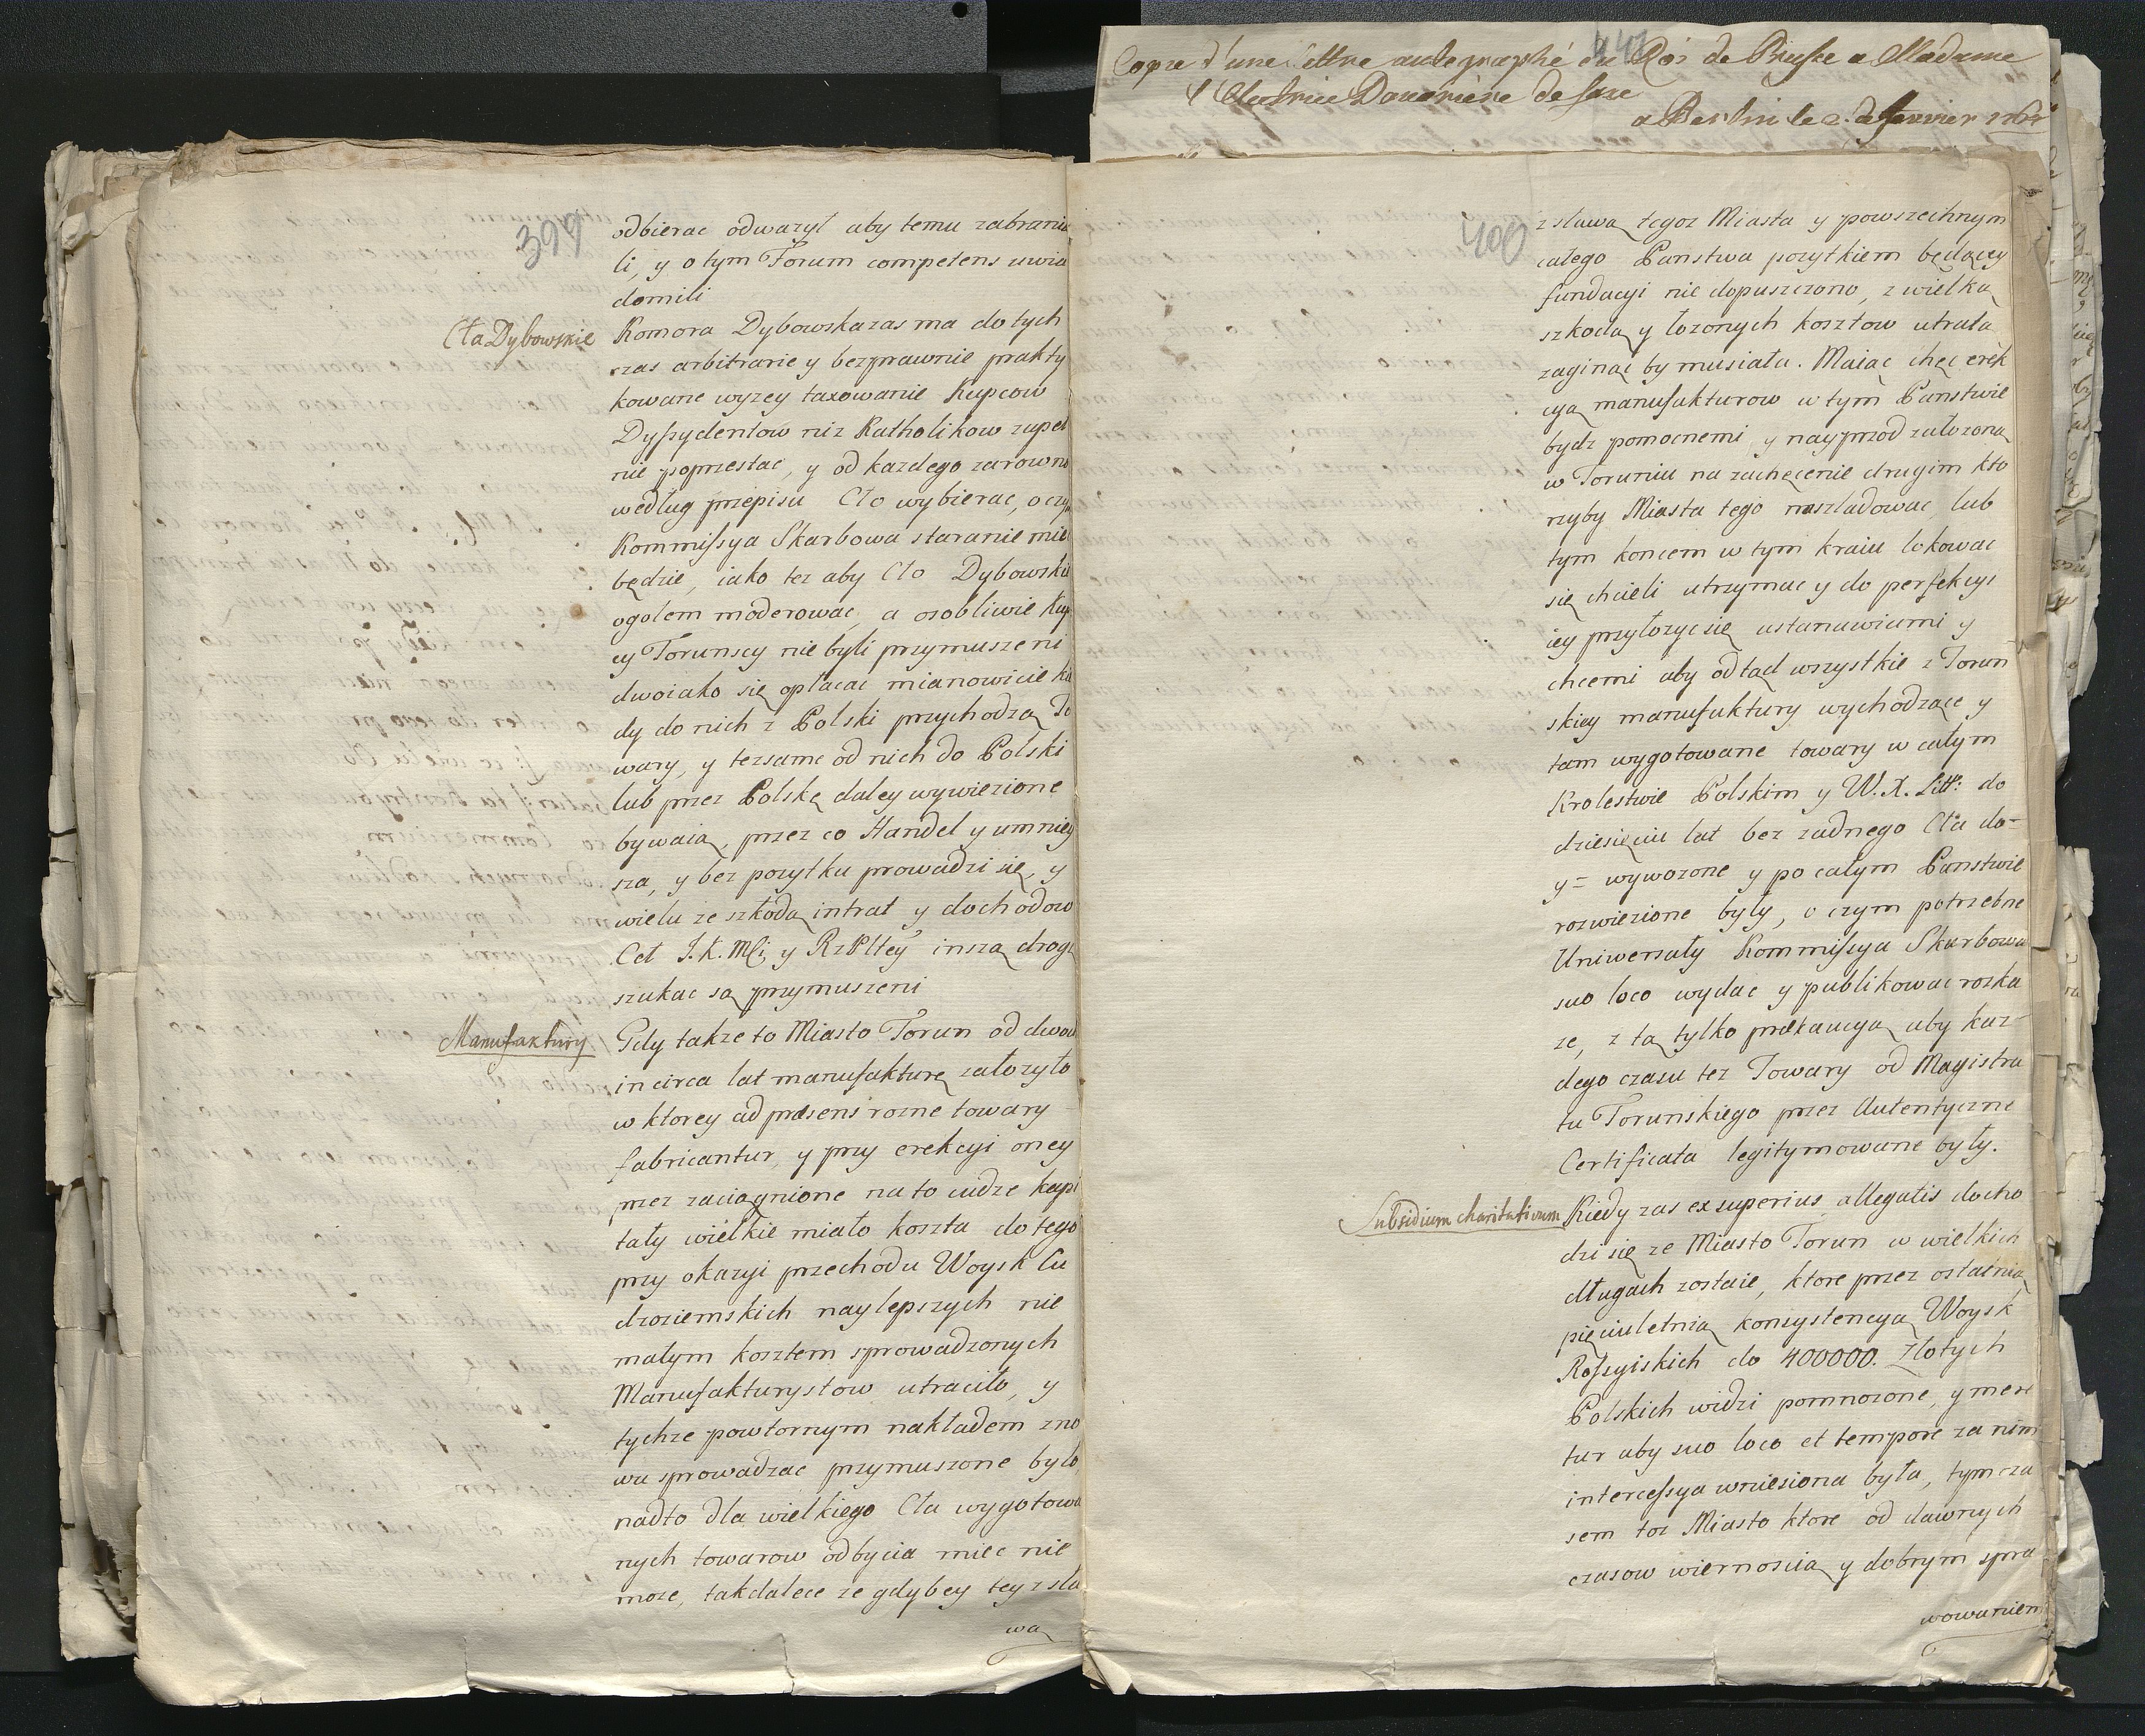 399
odbierac odwazyl aby temu zabrania
li, y o tym Forum competens uwia
domili
Cła Dybowskie
Komora Dybowska zas ma do tych
czas arbitrarie y bezprawnie prakty
kowane wyzey taxowanie Kupcow
Dyssydentow niz Katholikow zupeł
nie poprzestac, y od kazdego zarowno
według przepisu Cło wybierac, o czym
Kommissya Skarbowa staranie miec
będzie, iako tez aby Cło Dybowskie
ogolem moderowac, a osobliwie Kup
cy Torunscy nie byli przymuszeni
dwoiako się opłacac mianowicie kie
dy do nich z Polski przychodzą To
wary, y tezsame od nich do Polski
lub przez Polskę daley wywiezione
bywaią, przez co Handel y umniey
sza, y bez pozytku prowadzi się, y
wielu ze szkodą intrat y dochodow
Ceł J. K. Mci, y RzPltey inszą drogę
szukac są przymuszeni
Manufaktury
Gdy takze to Miasto Torun od dwoch
in circa lat manufakturę załozyło
w ktorey ad præsens rozne towary
fabricantur, y przy erekcyi oney
przez zaciągnione na to cudze kapi
tały wielkie miało koszta do tego
przy okazyi przechodu Woysk Cu
dzoziemskich naylepszych nie
małym kosztem sprowadzonych
Manufakturystow utraciło, y
tychze powtornym nakładem zno
wu sprowadzac przymuszone było,
nadto dla wielkiego Cła wygotowa
nych towarow odbycia miec nie
moze, takdalece ze gdyby ey tey z sła
wą
Copie d'une lettre autographé du Roi de Prusse a Madame
l'Electrice Douariere de Saxe
a Berlin le 2. de Janvier
400
z sławą tegoz Miasta y powszechnym
całego Panstwa pozytkiem będącey
fundacyi nie dopuszczono, z wielką
szkodą y łozonych kosztow utratą
zaginąc by musiała. Maiąc chęc erek
cyą manufakturow w tym Panstwie
bydz pomocnemi, y nayprzod załozoną
w Toruniu na zachęcenie drugim kto
rzyby Miasta tego naszladowac, lub
tym koncem w tym kraiu lokowac
się chcieli utrzymac y do perfekcyi
iey przyłozyc się ustanawiami y
chcemi aby odtąd wszystkie z Torun
skiey manufaktury wychodzące y
tam wygotowane towary w całym
Krolestwie Polskim y W. X. Litt: do
dziesięciu lat bez zadnego Cła do=
y= wywozone y po całym Panstwie
rozwiezione były, o czym potrzebne
Uniwersały Kommissya Skarbowa
suo loco wydac y publikowac rozka
ze, z tą tylko prekaucyą aby kaz
dego czasu tez Towary od Magistra
tu Torunskiego przez Autentyczne
Certificata legitymowane były.
Subsidium charitativum
Kiedy zas ex superius allegatis docho
dzi się ze Miasto Torun w wielkich
długach zostaie, ktore przez ostatnią
pięciuletnią konsystencyą Woysk
Rossyiskich do 400000. Złotych
Polskich widzi pomnozone, y mere
tur aby suo loco et tempore za nim
intercessya wniesiona była, tymcza
sem toz Miasto ktore od dawnych
czasow wiernoscią y dobrym spra
wowaniem